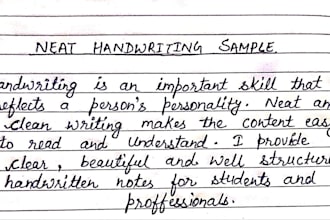 NEAT HANDWRITING SAMPLE
andwriting is an important skill that
eflects a person's personality. Neat an
clean writing makes the content eas
to read and understand. I provide
clear, beautiful and well structure
handwritten notes for students and
proffessionals.